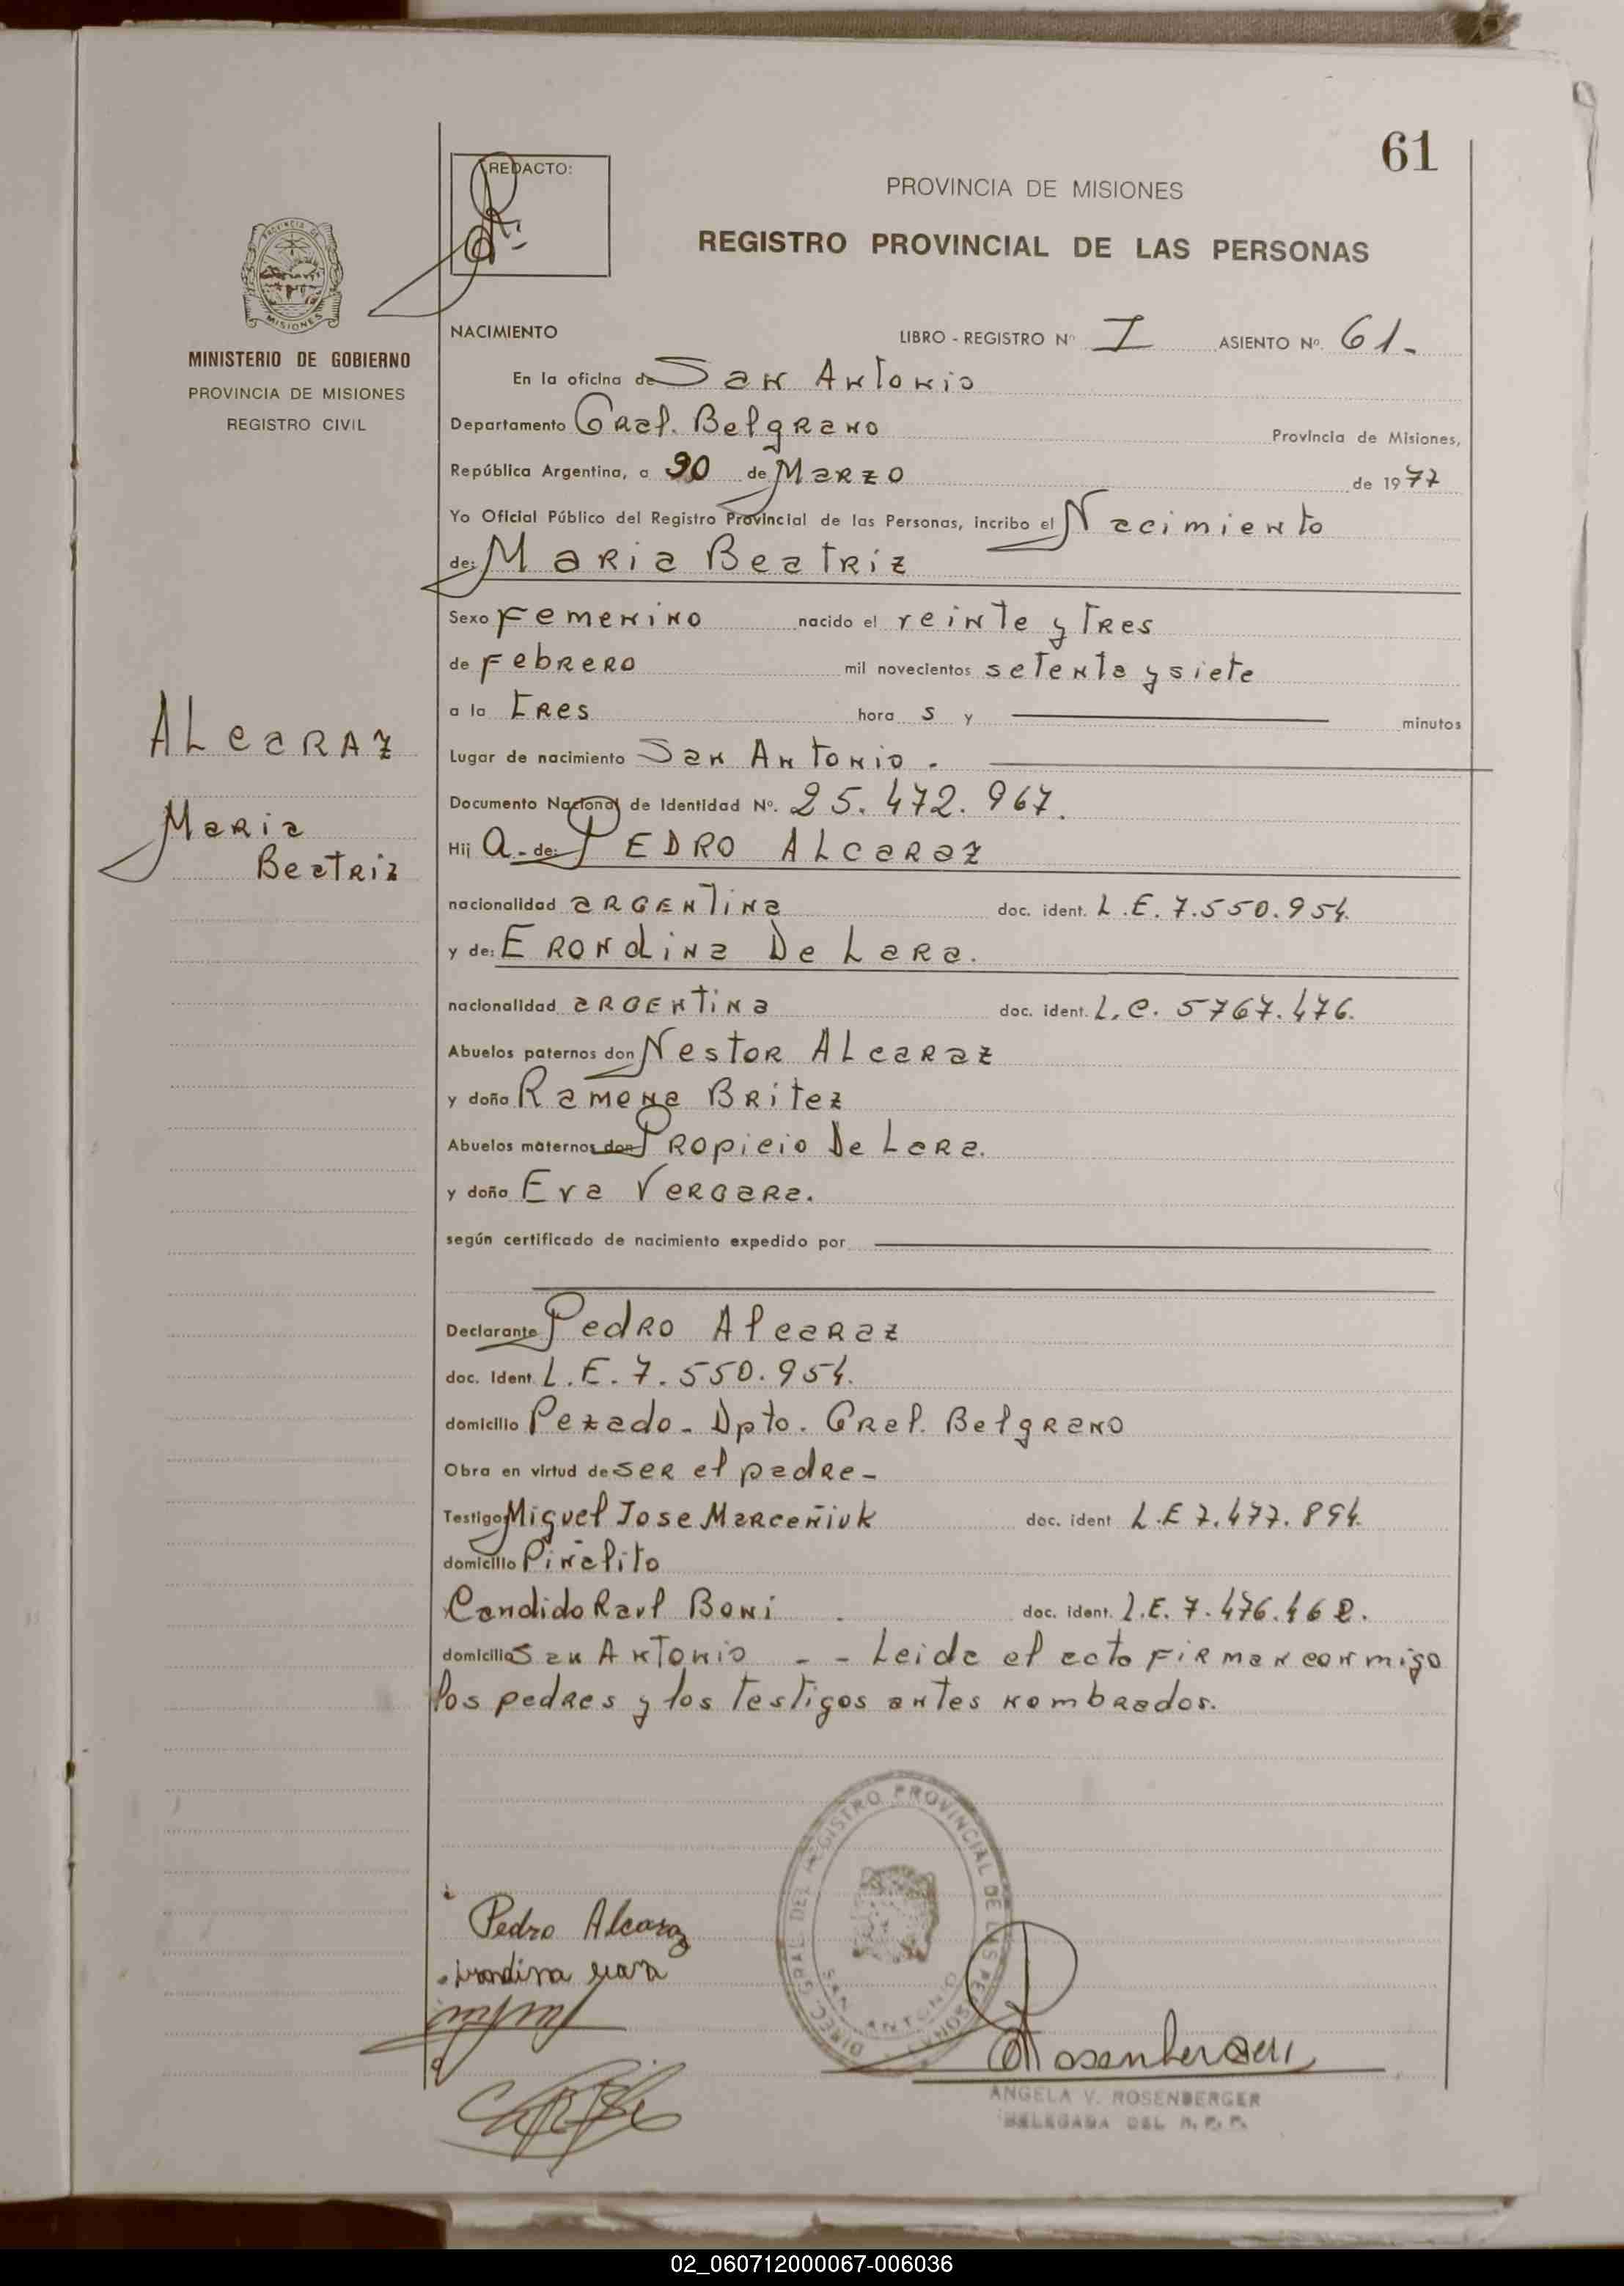 61
REDACTO:
PROVINCIA DE MISIONES
REGISTRO PROVINCIAL DE LAS PERSONAS
PROVINCIA DE
MISIONES
MINISTERIO DE GOBIERNO
PROVINCIA DE MISIONES
REGISTRO CIVIL
NACIMIENTO LIBRO - REGISTRO Nº I ASIENTO Nº. 61.-
En la oficina de San Antonio
Departamento Gral. Belgrano Provincia de Misiones,
República Argentina, a de Marzo de 1977
Yo Oficial Público del Registro Provincial de las Personas, incribo el Nacimiento
de: Maria Beatriz
Sexo Femenino nacido el veinte y tres
de Febrero mil novecientos setenta y siete
a la tres hora s y minutos
Lugar de nacimiento San Antonio.
Documento Nacional de Identidad Nº. 25.472.967.
Hij a.- de: PEDRO ALcaraz
nacionalidad argentina doc. ident. L.E. 7.550.954.
y de: Erondina De Lara.
nacionalidad argentina doc. ident. L.C. 5767.476.
Abuelos paternos don Nestor ALcaraz
y doña Ramona Britez
Abuelos maternos don Propicio De Lara.
y doña Eva Vergara.
según certificado de nacimiento expedido por
Declarante Pedro Alcaraz
doc. Ident. L.E. 7.550.954.
domicilio Dpto. Gral. Belgrano
Obra en virtud de ser el padre-
Testigo: Miguel Jose Marceñiuk doc. ident L.E 7.477.894.
domicilio Piñalito
Candido Raul Boni doc. ident. L.E. 7.476.462.
domicilio San Antonio - - Leida el acto firman conmigo
los padres y los testigos antes nombrados.
ALcaraz
Maria
Beatriz
DIREC. GRAL. DEL REGISTRO PROVINCIAL DE LAS PERSONAS
SAN ANTONIO
Pedro Alcaraz
Rosenberger
ANGELA V. ROSENBERGER
DELEGADA DEL R. P. P.
02_060712000067-006036